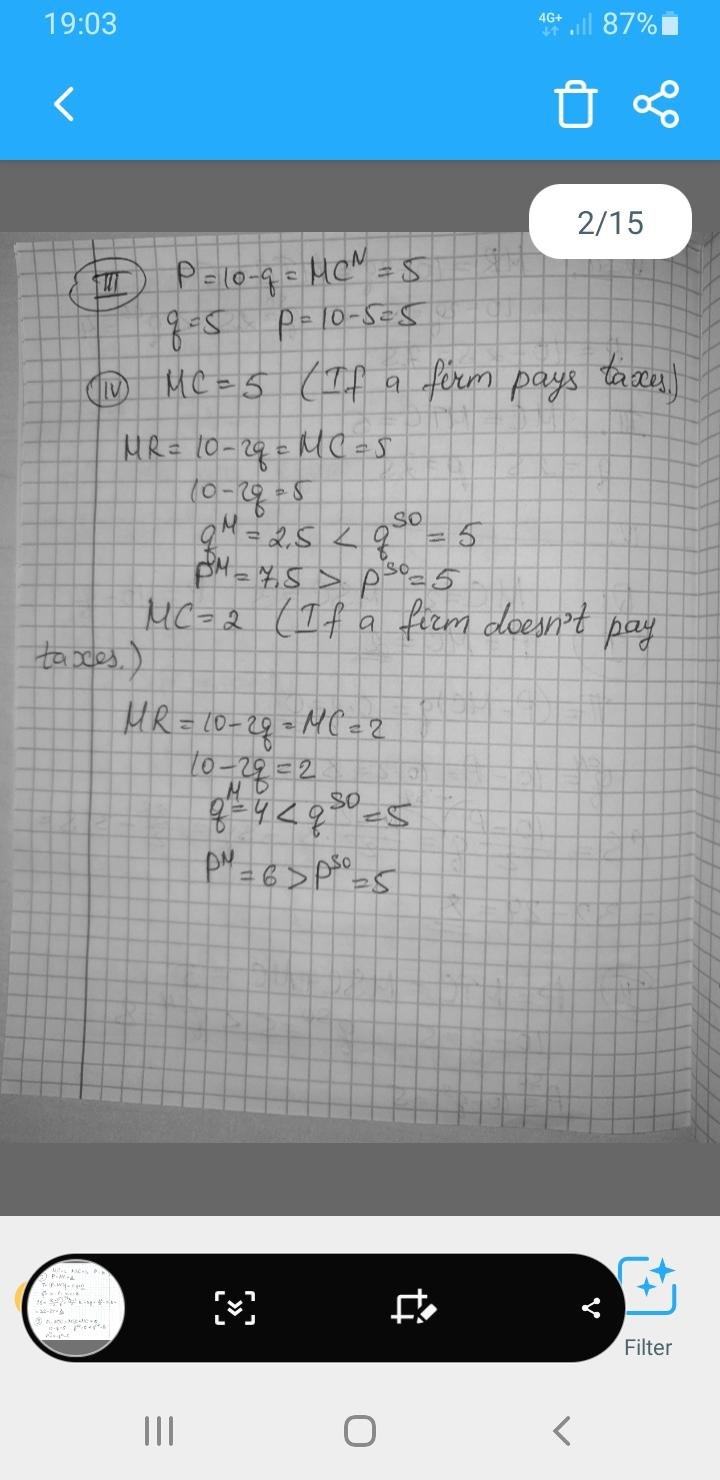 19:03
4G+ 87%
2/15
III P=10-q=MCᴺ=5
q=5 p=10-5=5
IV MC=5 (If a firm pays taxes.)
MR=10-2q=MC=5
10-2q=5
qᴹ=2,5 < qˢᴼ=5
Pᴹ=7.5 > pˢᴼ=5
MC=2 (If a firm doesn't pay
taxes.)
MR=10-2q=MC=2
10-2q=2
qᴹ=4 < qˢᴼ=5
Pᴹ=6 > Pˢᴼ=5
Filter